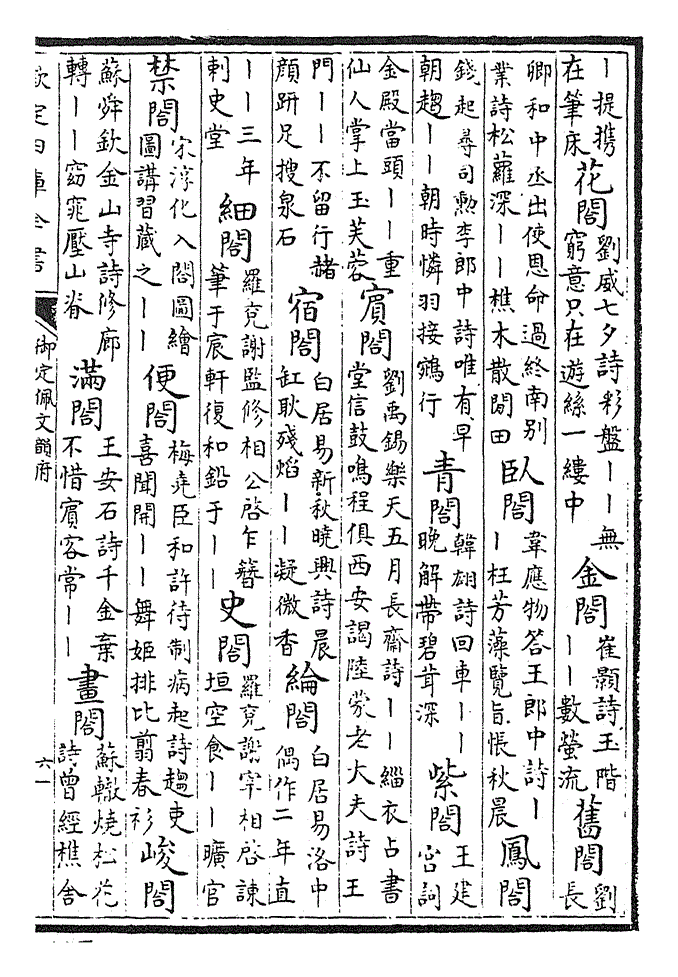 丨提攜在筆床 花閣 劉威七夕詩彩盤丨丨無窮意只在遊絲一縷中 金閣 崔顥詩玉階丨丨數螢流 舊閣 劉長
卿和中丞出使恩命過終南別業詩松蘿深丨丨樵木散閒田 臥閣 韋應物答王郎中詩丨丨枉芳藻覽旨悵秋晨 鳳閣
錢起尋司勲李郎中詩唯有早朝趨丨丨朝時憐羽接鵷行 青閣 韓翃詩回車丨丨晚解帶碧茸深 紫閣 王建宮詞
金殿當頭丨丨重仙人掌上玉芙蓉 賓閣 劉禹錫樂天五月長齋詩丨丨緇衣占書堂信鼓鳴程俱西安謁陸蒙老大夫詩王
門丨丨不留行赭顔趼足搜泉石 宿閣 白居易新秋曉興詩晨缸耿殘焰丨丨凝微香 綸閣 白居易洛中偶作二年直
丨丨三年刺史堂 細閣 羅兗謝監修相公啓乍簪筆于宸軒復和鉛于丨丨 史閣 羅兗謝宰相啓諫垣空食丨丨曠官
禁閣 宋淳化入閣圖繪圖講習藏之丨丨 便閣 梅堯臣和許待制病起詩趨吏喜聞開丨丨舞姬排比翦春衫 峻閣
蘇舜欽金山寺詩修廊轉丨丨窈窕壓山脊 滿閣 王安石詩千金棄不惜賓客常丨丨 畫閣 蘇轍燒松花詩曾經樵舍
欽定四庫全書 御定佩文韻府 六一